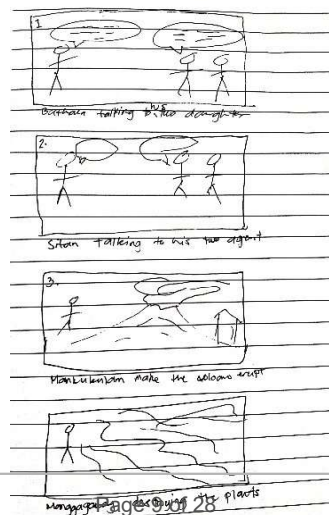 1
Bathala talking to his two daughter
2.
Sitan talking to his two agent
3.
Mankukulam make the volcano erupt
the plants
Page 9 of 28